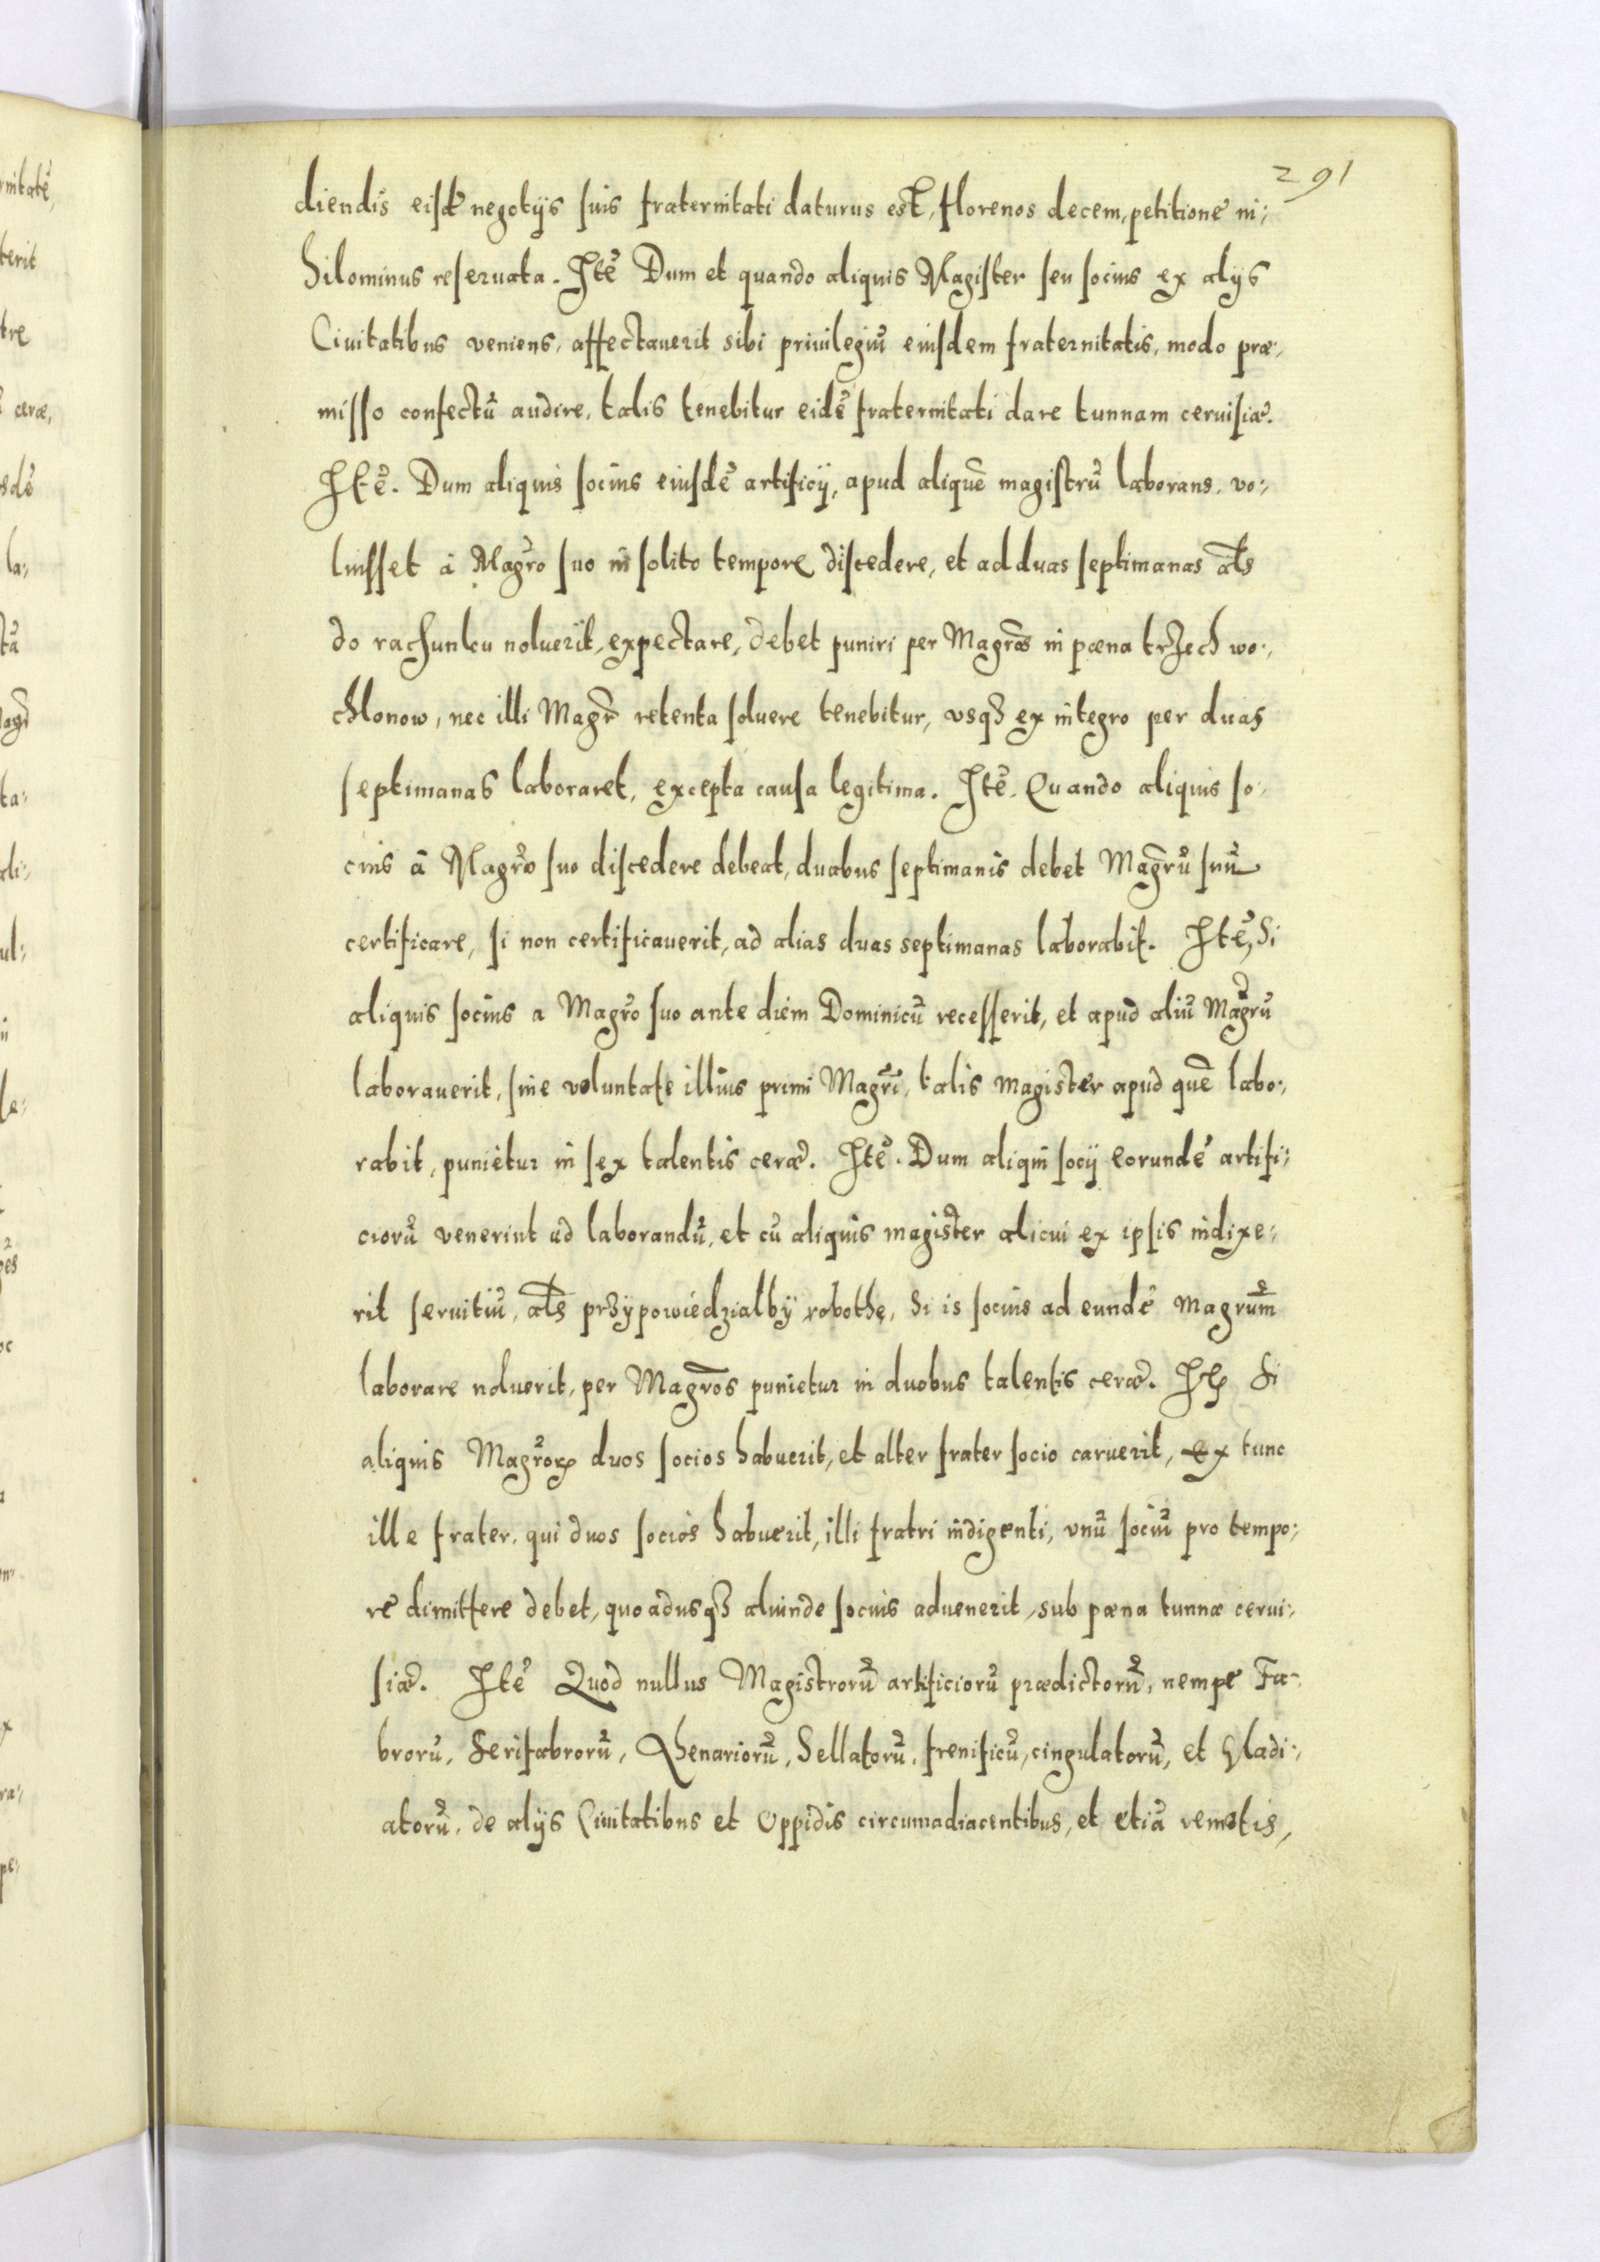 291
diendis eisdē negotijs suis fraternitati daturus est, florenos decem, petitione ni:
hilominus reseruata. Itē Dum et quando aliquis Magister seu socius ex alijs
Ciuitatibus veniens, affectauerit sibi priuilegiū eiusdem fraternitatis, modo præ:
misso confectū audire, talis tenebitur eidē fraternitati dare tunnam ceruisiæ.
Itē. Dum aliquis socius eiusdē artificij, apud aliquē magistrū laborans, vo:
luisset â Magrō suo in solito tempore discedere, et ad duas septimanas als
do rachunku noluerit, expectare, debet puniri per Magrōs in pæna trzech wo:
chlonow, nec illi Magr̄ retenta soluere tenebitur, vsqȝ ex integro per duas
septimanas laboraret, excepta causa legitima. Itē. Quando aliquis so:
cius â Magrō suo discedere debeat, duabus septimanis debet Magrū suū
certificare, si non certificauerit, ad alias duas septimanas laborabit. Itē, Si
aliquis socius a Magrō suo ante diem Dominicū recesserit, et apud aliū Magrū
laborauerit, sine voluntate illius primi Magrī, talis magister apud quē labo:
rabit, punietur in sex talentis ceræ. Itē. Dum aliqui socij eorundē artifi:
ciorū venerint ad laborandū, et cū aliquis magister alicui ex ipsis indixe:
rit seruitiū, als przypowiedzialby robothę, Si is socius ad eundē Magrūm
laborare noluerit, per Magrōs punietur in duobus talentis ceræ. Itē Si
aliquis Magrōꝝ duos socios habuerit, et alter frater socio caruerit, ex tunc
ille frater, qui duos socios habuerit, illi fratri indigenti, vnū sociū pro tempo:
re dimittere debet, quoadusqȝ aliunde socius aduenerit, sub pæna tunnæ cerui:
siæ. Itē Quod nullus Magistrorū artificiorū prædictorū, nempe Fa:
brorū, Serifabrorū, Rhenariorū, Sellatorū, frenificū, cingulatorū, et Gladi:
atorū, de alijs Ciuitatibus et Oppidis circumadiacentibus, et etiā remotis,